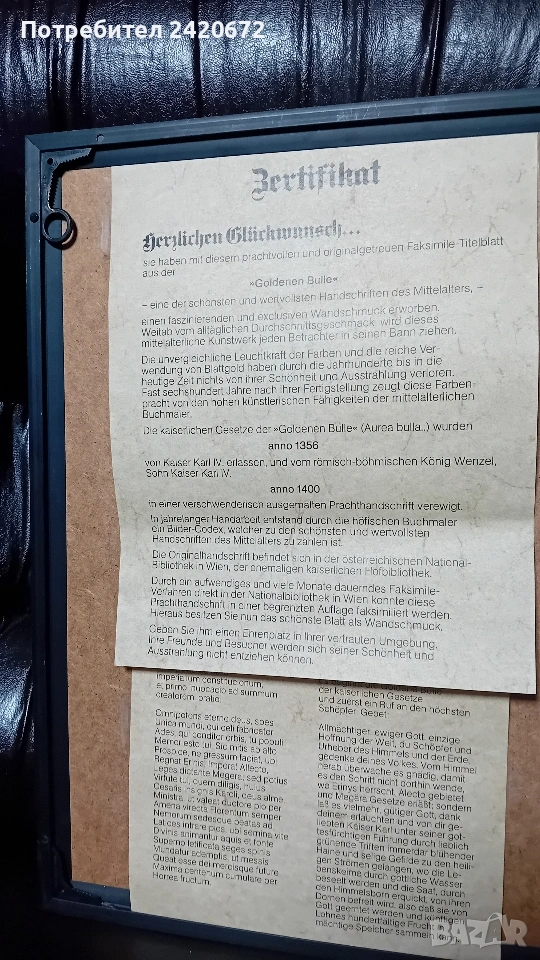 Потребител 2420672
Zertifikat
Herzlichen Glückwunsch...
sie haben mit diesem prachtvollen und originalgetreuen Faksimile-Titelblatt
aus der
»Goldenen Bulle«
– eine der schönsten und wertvollsten Handschriften des Mittelalters, –
einen faszinierenden und exclusiven Wandschmuck erworben.
Weitab vom alltäglichen Durchschnittsgeschmack, wird dieses
mittelalterliche Kunstwerk jeden Betrachter in seinen Bann ziehen.
Die unvergleichliche Leuchtkraft der Farben und die reiche Ver-
wendung von Blattgold haben durch die Jahrhunderte bis in die
heutige Zeit nichts von ihrer Schönheit und Ausstrahlung verloren.
Fast sechshundert Jahre nach ihrer Fertigstellung zeugt diese Farben-
pracht von den hohen künstlerischen Fähigkeiten der mittelalterlichen
Buchmaler.
Die kaiserlichen Gesetze der »Goldenen Bulle« (Aurea bulla..) wurden
anno 1356
von Kaiser Karl IV. erlassen, und vom römisch-böhmischen König Wenzel,
Sohn Kaiser Karl IV.
anno 1400
in einer verschwenderisch ausgemalten Prachthandschrift verewigt.
In jahrelanger Handarbeit entstand durch die höfischen Buchmaler
ein Bilder-Codex, welcher zu den schönsten und wertvollsten
Handschriften des Mittelalters zu zählen ist.
Die Originalhandschrift befindet sich in der österreichischen National-
Bibliothek in Wien, der ehemaligen kaiserlichen Hofbibliothek.
Durch ein aufwendiges und viele Monate dauerndes Faksimile-
Verfahren direkt in der Nationalbibliothek in Wien konnte diese
Prachthandschrift in einer begrenzten Auflage faksimiliert werden.
Hieraus besitzen Sie nun das schönste Blatt als Wandschmuck.
Geben Sie ihm einen Ehrenplatz in Ihrer vertrauten Umgebung,
Ihre Freunde und Besucher werden sich seiner Schönheit und
Ausstrahlung nicht entziehen können.
imperialium constitucionum,
et primo invocacio ad summum
creatorem, oratio.
Omnipotens eterne deus, spes
unica mundi, qui celi fabricator
Ades, qui conditor orbis, tu populi
Memor esto tui. Sic mitis ab alto
Prospice, ne gressum faciat, ubi
Regnat Erinis, Imperat Allecto,
Leges dictante Megera, sed potius
Virtute tui, quem diligis, huius
Cesaris insignis Karoli, deus alme,
Ministra, ut valeat ductore pio per
Amena vireta Florentum semper
Nemorum sedesque beatas ad
Latices intrare pios, ubi semina vite
Divinis animantur aquis et fonte
Superno letificata seges spinis
Mundatur ademptis, ut messis
Queat esse dei mercisque future
Maxima centenum cumulare per
Horrea fructum.
der kaiserlichen Gesetze
und zuerst ein Ruf an den höchsten
Schöpfer, Gebet.
Allmächtiger, ewiger Gott, einzige
Hoffnung der Welt, du Schöpfer und
Urheber des Himmels und der Erde,
gedenke deines Volkes. Vom Himmel
herab überwache es gnädig, damit
es den Schritt nicht dorthin wende,
wo Erinys herrscht, Alecto gebietet
und Megära Gesetze erläßt, sondern
laß es vielmehr, gütiger Gott, dank
deinem erlauchten und von dir ge-
liebten Kaiser Karl unter seiner got-
tesfürchtigen Führung durch lieblich
grünende Triften immerdar blühender
Haine und selige Gefilde zu den heili-
gen Strömen gelangen, wo die Le-
benskeime durch göttliche Wasser
beseelt werden und die Saat, durch
den Himmelsborn erquickt, von ihren
Dornen befreit wird, also daß sie von
Gott geerntet werden und künftigen
Lohnes hundertfältige Frucht
mächtige Speicher sammeln
BAZAR